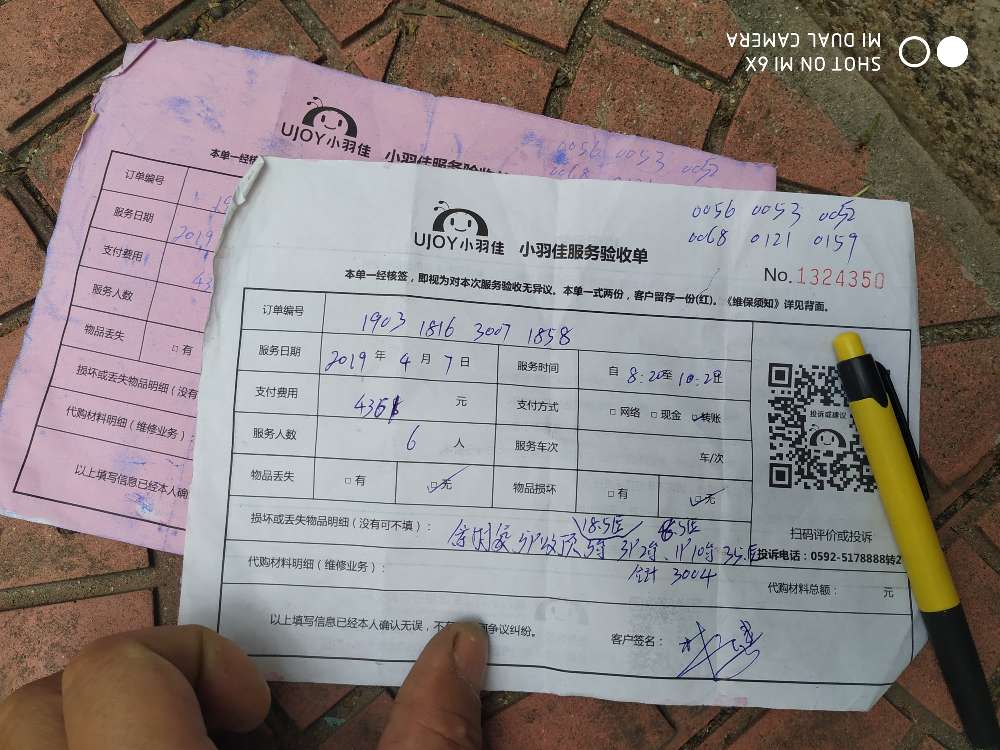 SHOT ON MI 6X
MI DUAL CAMERA
UJOY小羽佳
小羽佳服务验收单
本单一经核
0056 0053 0052
订单编号
服务日期
2019
支付费用
43
服务人数
物品丢失
□有
损坏或丢失物品明细(没有
代购材料明细(维修业务):
以上填写信息已经本人确
0056 0053 0052
0068 0121 0159
UJOY小羽佳 小羽佳服务验收单
No.1324350
本单一经核签,即视为对本次服务验收无异议。本单一式两份,客户留存一份(红)。《维保须知》详见背面。
订单编号 1903 1816 3007 1858
服务日期 2019年4月7日 服务时间 自8:20至10:20
支付费用 元 支付方式 □网络 □现金 □转账
服务人数 6人 服务车次 车/次
物品丢失 □有 □无 物品损坏 □有 □无
投诉或建议
18.5
损坏或丢失物品明细(没有可不填):
扫码评价或投诉
投诉电话:0592-5178888转2
合计 3004
代购材料明细(维修业务): 代购材料总额: 元
以上填写信息已经本人确认无误,不 争议纠纷。 客户签名: